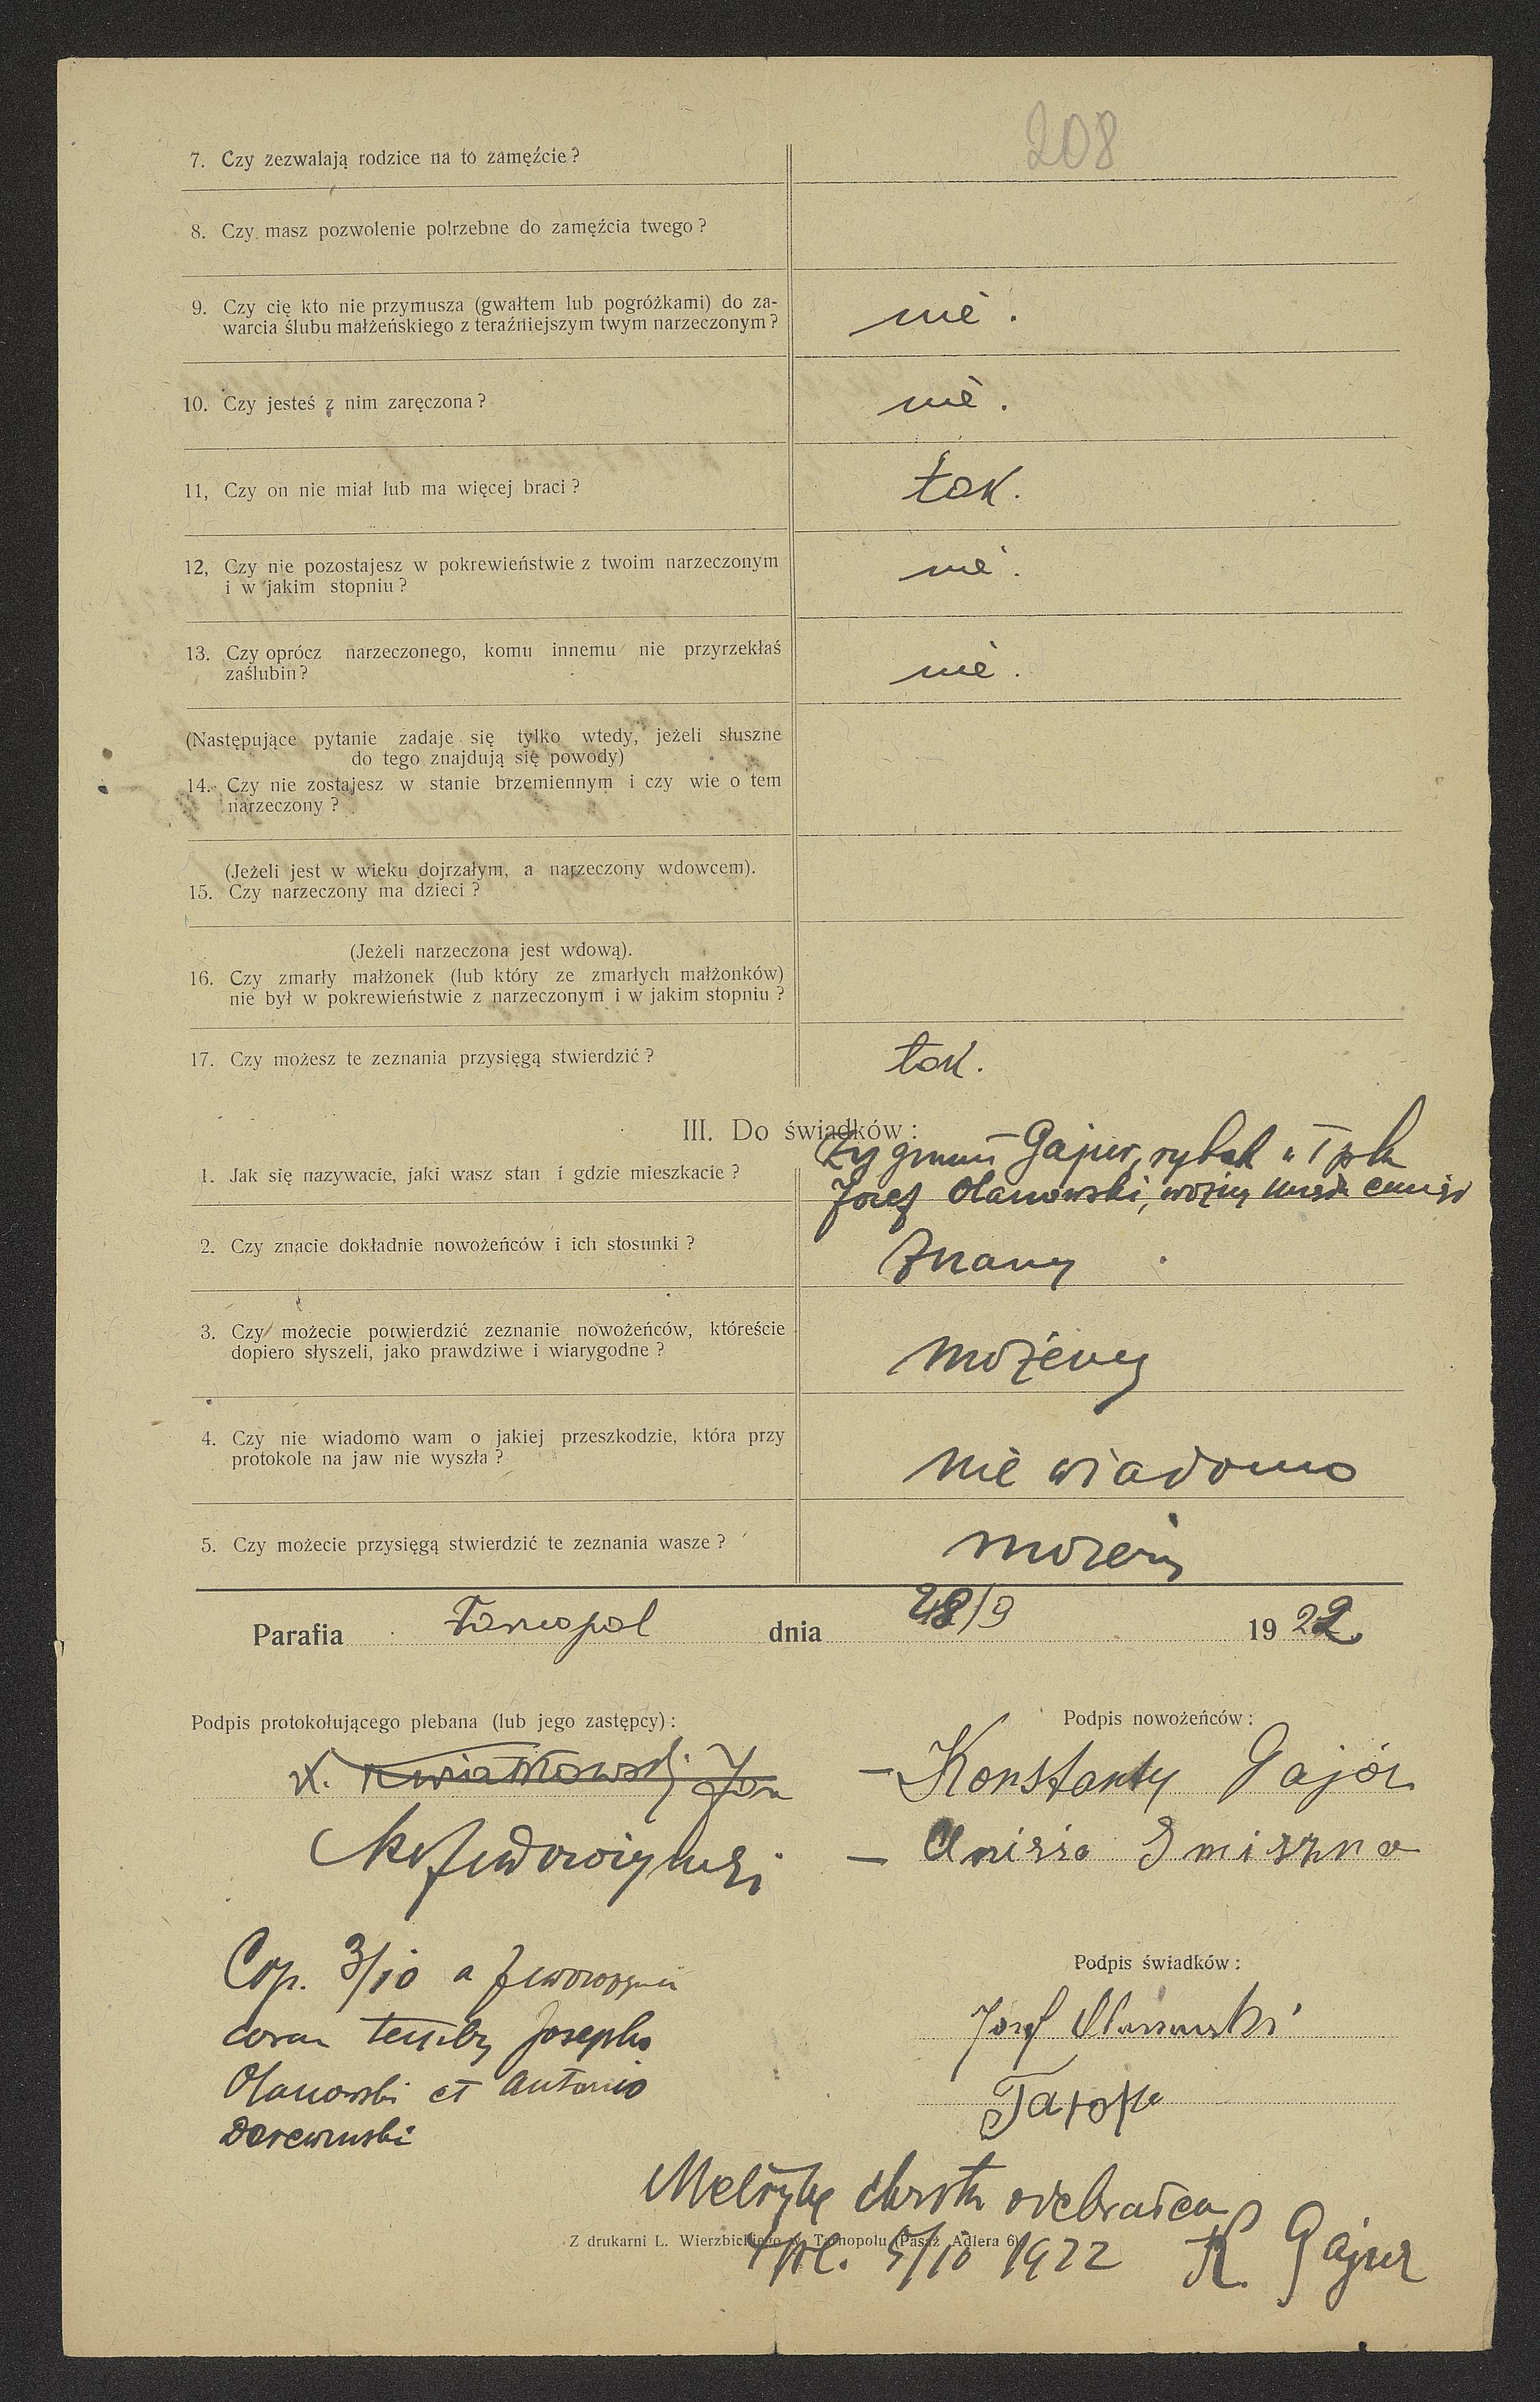 208
7. Czy zezwalają rodzice na to zamęźcie?
8. Czy masz pozwolenie potrzebne do zamęźcia twego?
9. Czy cię kto nie przymusza (gwałtem lub pogróżkami) do za-
warcia ślubu małżeńskiego z teraźniejszym twym narzeczonym?
nie.
10. Czy jesteś z nim zaręczona?
nie.
11, Czy on nie miał lub ma więcej braci?
tak.
12, Czy nie pozostajesz w pokrewieństwie z twoim narzeczonym
i w jakim stopniu?
nie.
13. Czy oprócz narzeczonego, komu innemu nie przyrzekłaś
zaślubin?
nie.
(Następujące pytanie zadaje się tylko wtedy, jeżeli słuszne
do tego znajdują się powody)
14. Czy nie zostajesz w stanie brzemiennym i czy wie o tem
narzeczony?
(Jeżeli jest w wieku dojrzałym, a narzeczony wdowcem).
15. Czy narzeczony ma dzieci?
(Jeżeli narzeczona jest wdową).
16. Czy zmarły małżonek (lub który ze zmarłych małżonków)
nie był w pokrewieństwie z narzeczonym i w jakim stopniu?
17. Czy możesz te zeznania przysięgą stwierdzić?
tak.
III. Do świadków:
1. Jak się nazywacie, jaki wasz stan i gdzie mieszkacie?
Zygmunt Gajur, rybak
Józef Olanowski, woźny
2. Czy znacie dokładnie nowożeńców i ich stosunki?
Znamy
3. Czy możecie potwierdzić zeznanie nowożeńców, któreście
dopiero słyszeli, jako prawdziwe i wiarygodne?
możemy
4. Czy nie wiadomo wam o jakiej przeszkodzie, która przy
protokole na jaw nie wyszła?
nie wiadomo
5. Czy możecie przysięgą stwierdzić te zeznania wasze?
możemy
Parafia Tarnopol dnia 28/9 1922
Podpis protokołującego plebana (lub jego zastępcy):
X. Kwiatkowski Jan
Podpis nowożeńców:
– Konstanty Gajór
– Anizia Smiszna
Cop. 3/10 a
coram testibus Josepho
Olanowski et Antonio
Derewenski
Podpis świadków:
Józef Olanowski
Metrykę chrztu odebrałem
Z drukarni L. Wierzbickiego w Tarnopolu (Pasaż Adlera 6)
Tpl. 5/10 1922 K. Gajur